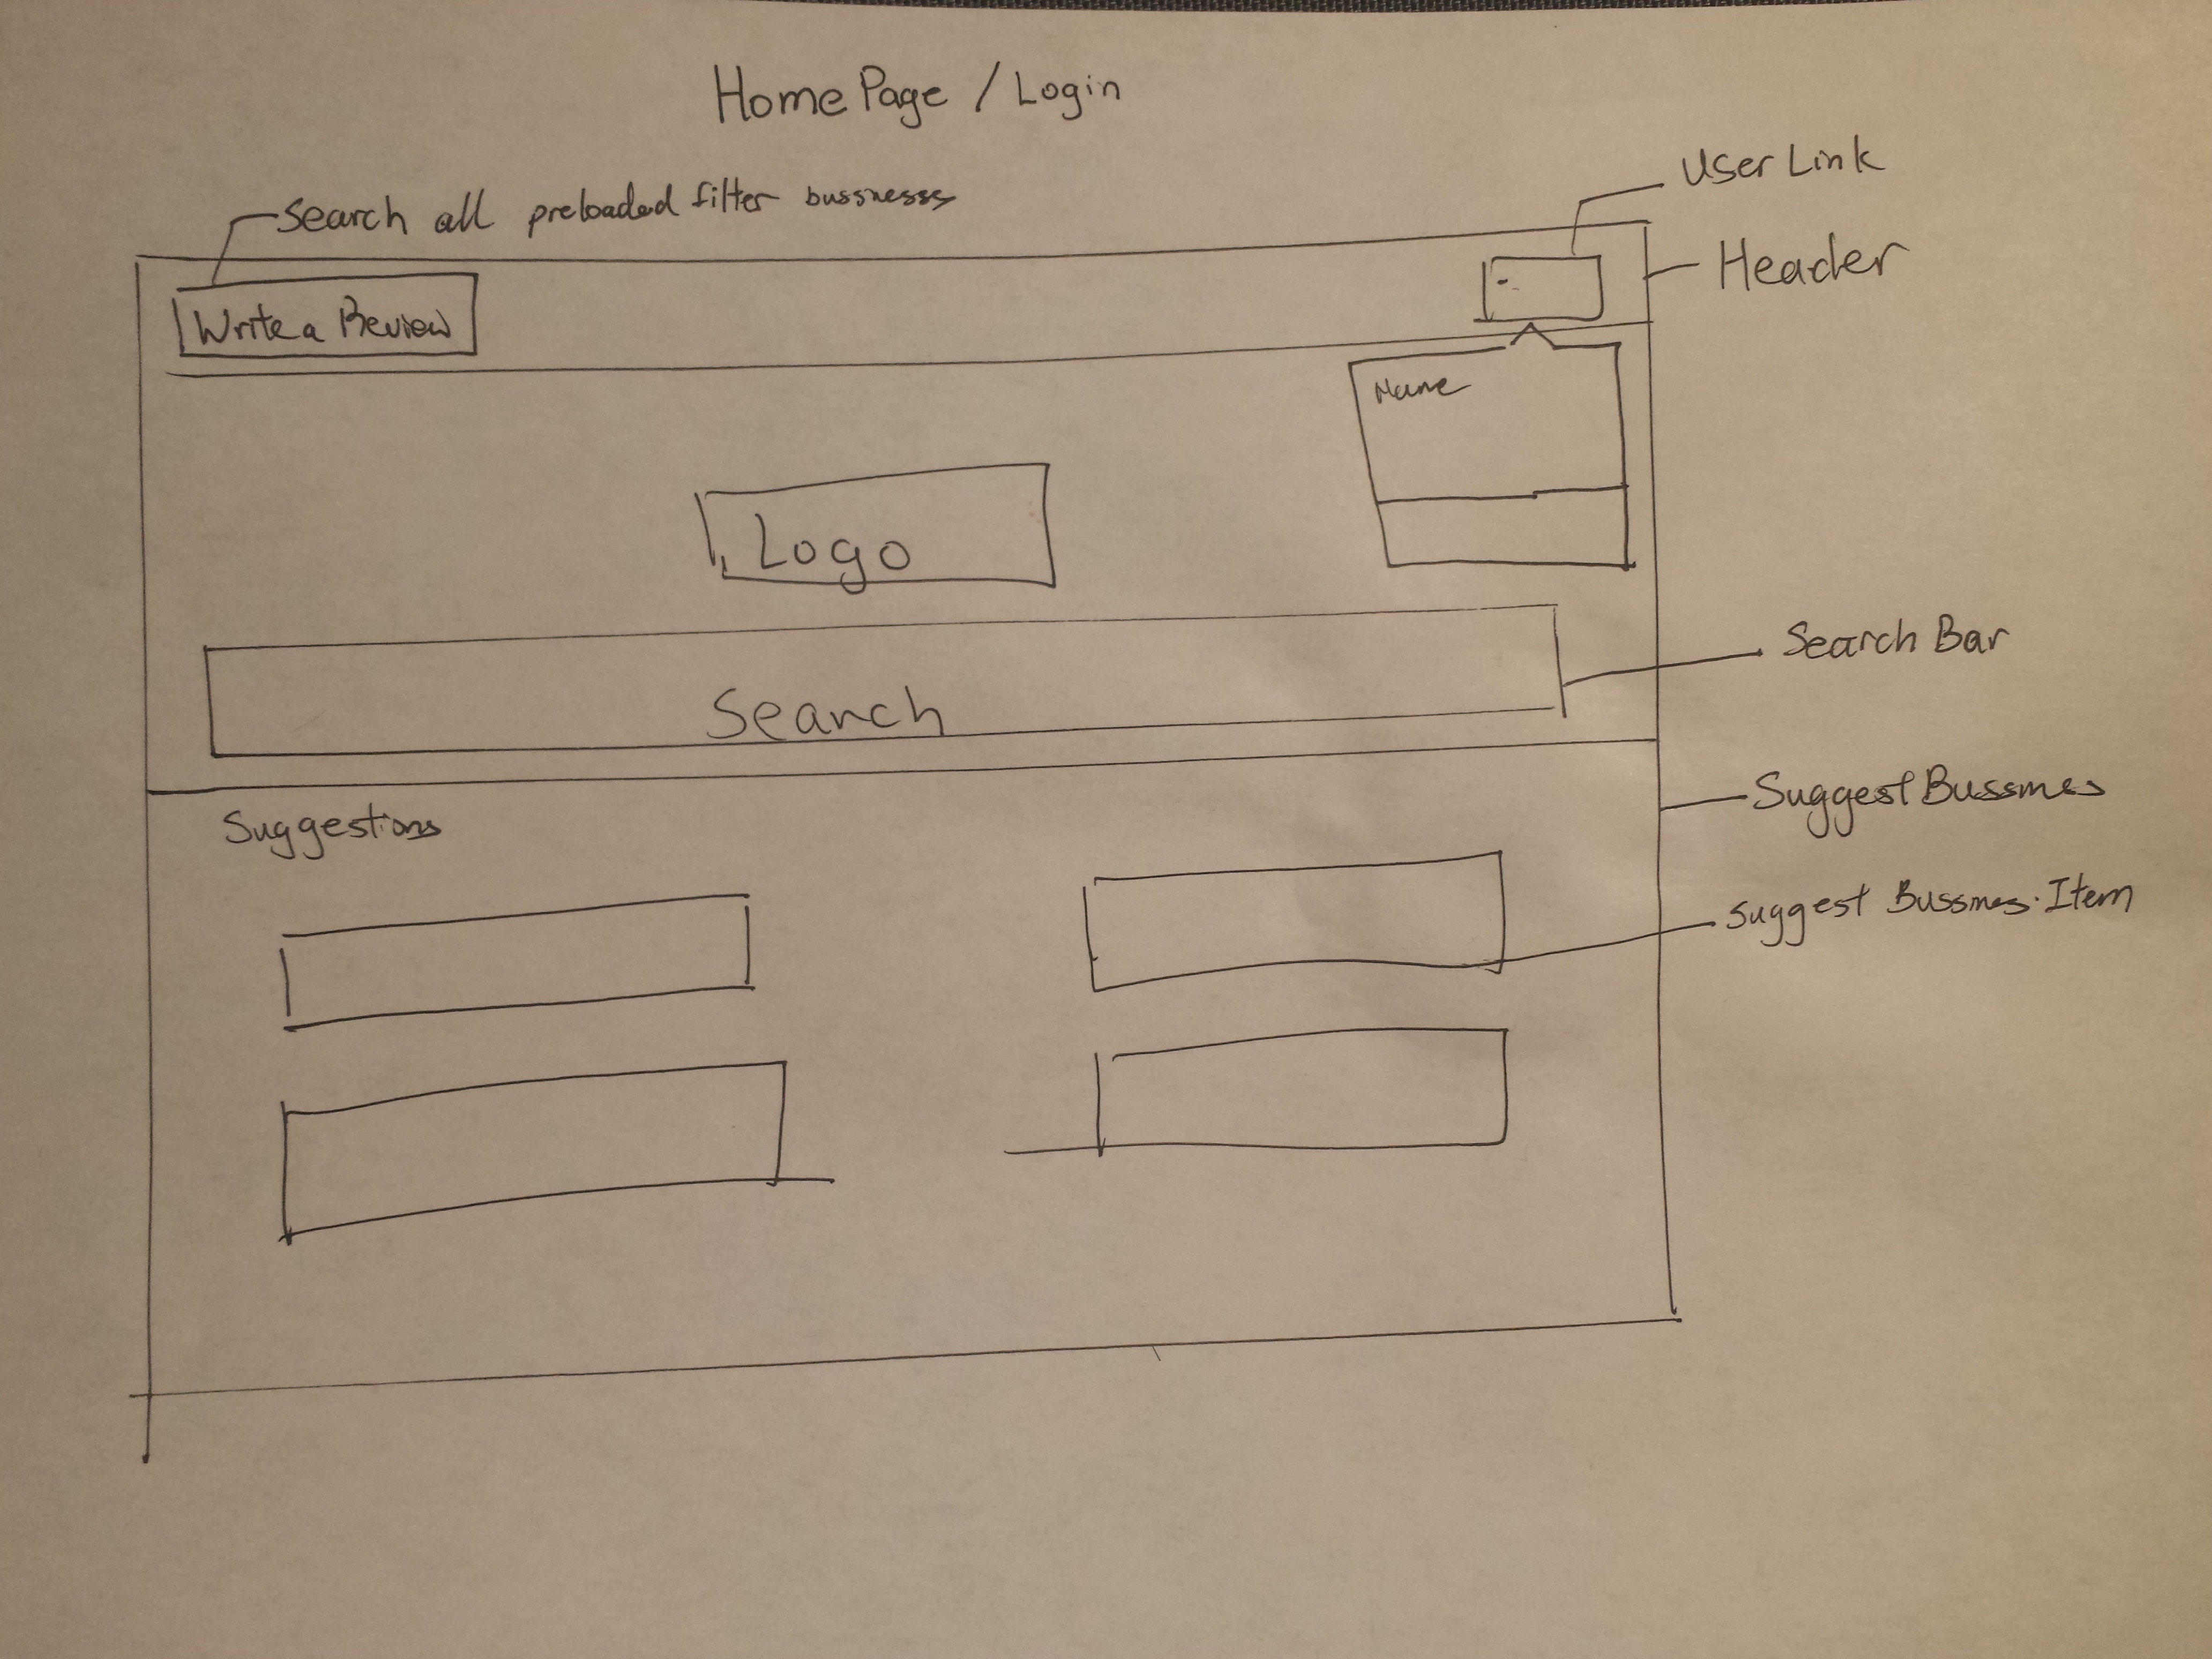 Home Page / Login
User Link
Search all preloaded filter bussnesss
Header
Write a Review
Name
Logo
Search Bar
Search
Suggest Bussnes
Suggestions
Suggest Bussnes Item